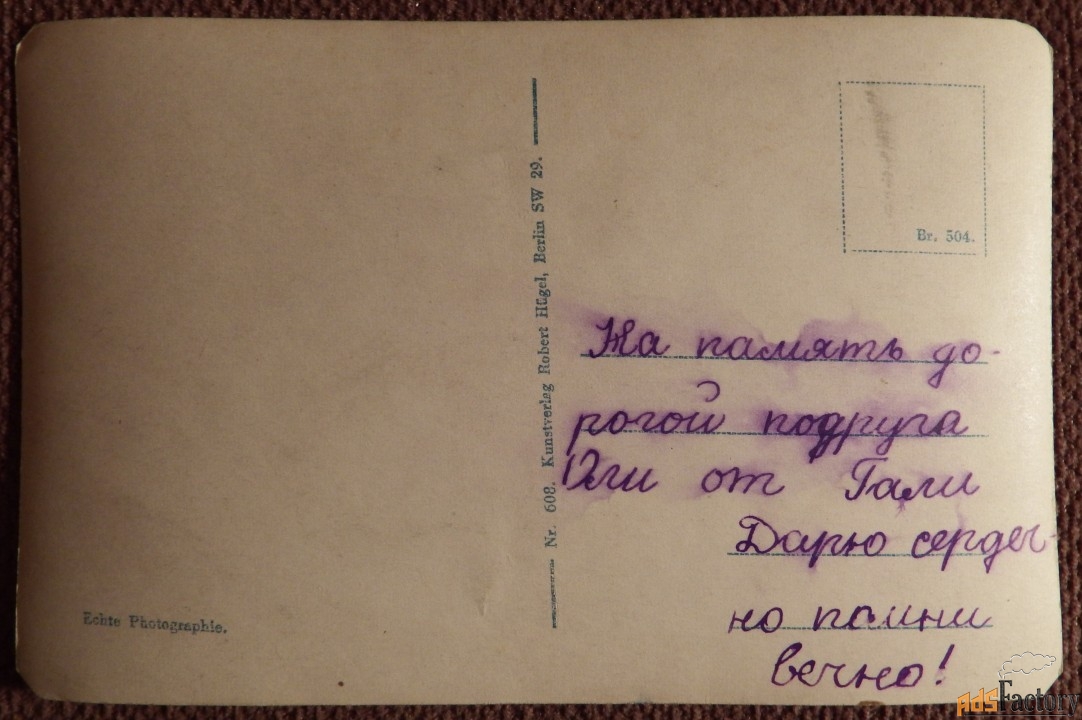 Br. 504.
Nr. 608. Kunstverlag Robert Hügel, Berlin SW 29.
На память до-
рогой подруга
Юли от Гали
Дарю сердеч-
но помни
вечно!
Echte Photographie.
AdsFactory